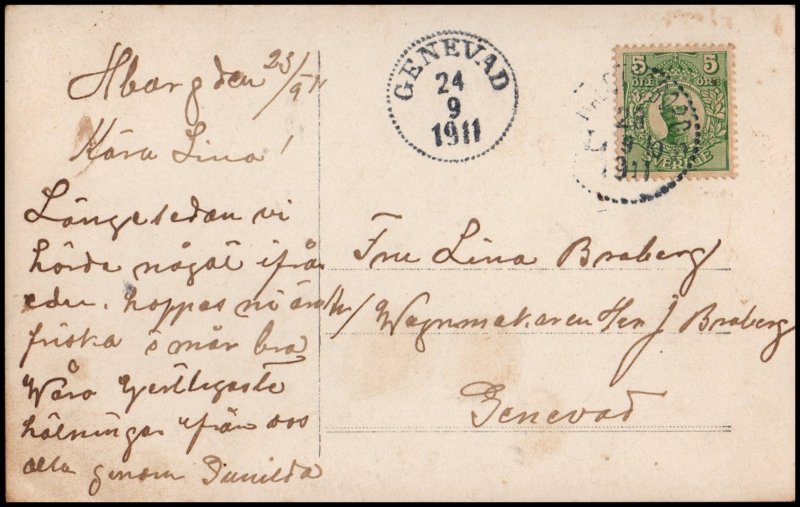 Hbarg den 23/9 11
Kära Lina!
Längesedan vi
hörde något ifrån
eder. hoppas ni är
friska o mår bra
Våra hjertligaste
hälsningar ifrån oss
alla genom
GENEVAD
24
9
1911
5 5
ÖRE ÖRE
SVERIGE
1911
Fru Lina Braberg
Wagnmakaren Herr J Braberg
Genevad